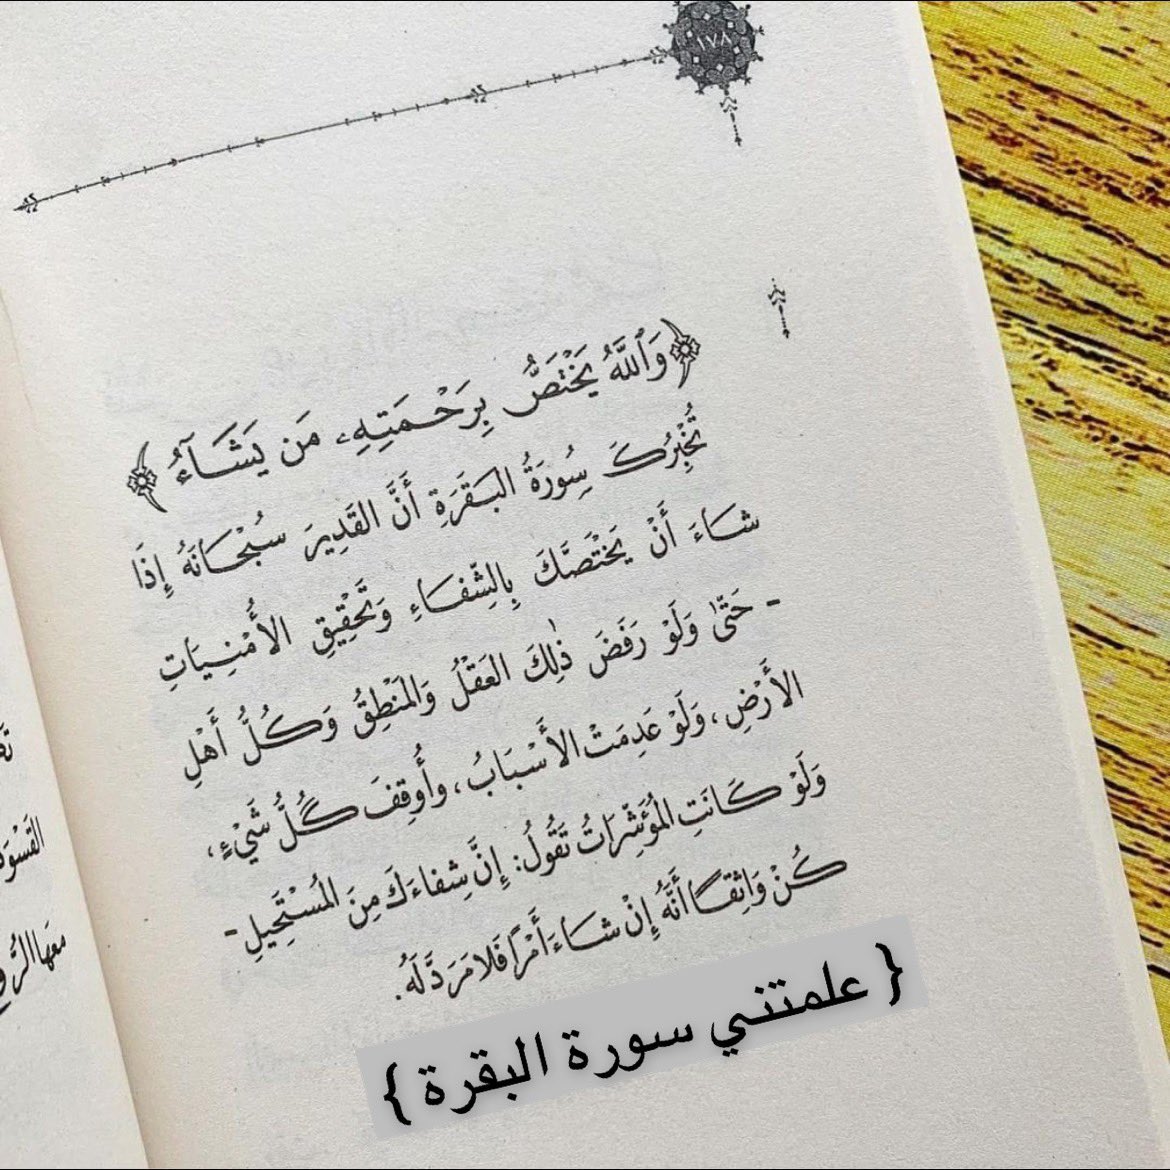 ١٧٨
﴿وَٱللَّهُ يَخْتَصُّ بِرَحْمَتِهِۦ مَن يَشَآءُ﴾
تُخْبِرُكَ سُورَةُ البَقَرَةِ أَنَّ القَدِيرَ سُبْحَانَهُ إِذَا
شَاءَ أَنْ يَخْتَصَّكَ بِالشِّفَاءِ وَتَحْقِيقِ الأُمْنِيَاتِ
- حَتَّىٰ وَلَوْ رَفَضَ ذٰلِكَ العَقْلُ وَالمَنْطِقُ وَكُلُّ أَهْلِ
الأَرْضِ، وَلَوْ عَدِمَتْ الأَسْبَابُ، وأُوقِفَ كُلُّ شَيْءٍ،
وَلَوْ كَانَتِ المُؤَشِّرَاتُ تَقُولُ: إِنَّ شِفاءَكَ مِنَ المُسْتَحِيلِ -
كُنْ وَاثِقًا أَنَّهُ إِنْ شَاءَ أَمْرًا فَلا مَرَدَّ لَهُ.
{ علمتني سورة البقرة }
القَسْوَة
معها الرُّ